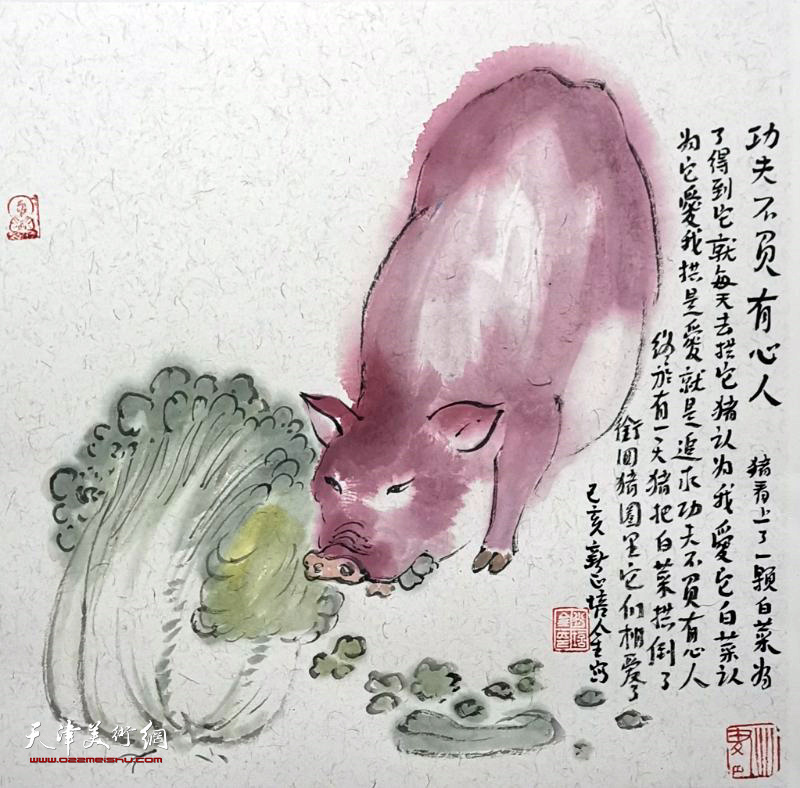 功夫不负有心人
猪看上了一颗白菜为
了得到它就每天去拱它猪认为我愛它白菜认
为它愛我拱是愛就是追求功夫不负有心人
终於有一天猪把白菜拱倒了
衔回猪圈里它们相爱了
己亥新正培人生写
天津美術網
www.022meishu.com